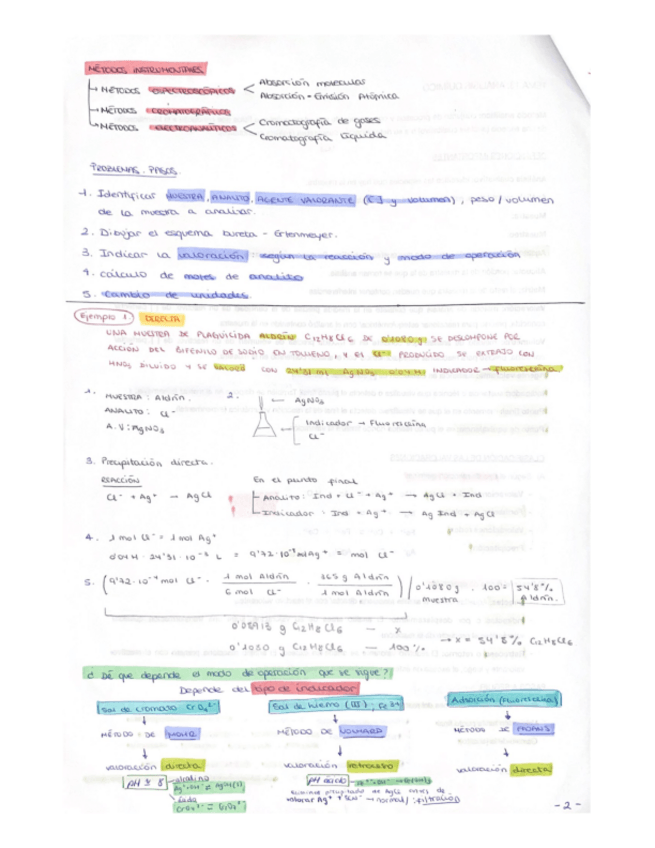 MÉTODOS INSTRUMENTALES
MÉTODOS ESPECTROSCÓPICOS
Absorción molecular
Absorción - Emisión Atómica
MÉTODOS CROMATOGRÁFICOS
MÉTODOS ELECTROANALÍTICOS
Cromatografía de gases
Cromatografía líquida
PROBLEMAS. PASOS.
1. Identificar MUESTRA, ANALITO, AGENTE VALORANTE ([ ] y volumen), peso/volumen
de la muestra a analizar.
2. Dibujar el esquema bureta - Erlenmeyer.
3. Indicar la valoración según la reacción y modo de operación
4. cálculo de moles de analito
5. Cambio de unidades
Ejemplo 1. DIRECTA
UNA MUESTRA DE PLAGUICIDA ALDRÍN C12H8Cl6 DE 0'1080 g, SE DESCOMPONE POR
ACCIÓN DEL BIFENILO DE SODIO EN TOLUENO, Y EL Cl- PRODUCIDO SE EXTRAJO CON
HNO3 DILUIDO Y SE VALORÓ CON 24'31 ml AgNO3 0'04 M INDICADOR → fluoresceína.
1. MUESTRA: Aldrín.
ANALITO: Cl-
A.V: AgNO3
2. AgNO3
Indicador → Fluoresceína
Cl-
3. Precipitación directa.
REACCIÓN
Cl- + Ag+ → AgCl
En el punto final
Analito: Ind + Cl- + Ag+ → AgCl + Ind
Indicador: Ind + Ag+ → Ag Ind + AgCl
4. 1 mol Cl- = 1 mol Ag+
0'04 M · 24'31 · 10-3 L = 9'72·10-4 mol Ag+ = mol Cl-
5. (9'72·10-4 mol Cl- · 1 mol Aldrín / 6 mol Cl- · 365 g Aldrín / 1 mol Aldrín) / 0'1080 g muestra · 100 = 54'8% Aldrín.
0'05913 g C12H8Cl6 — x
0'1080 g C12H8Cl6 — 100% → x = 54'8% C12H8Cl6
¿De qué depende el modo de operación que se sigue?
Depende del tipo de indicador
Sal de cromato CrO4 2-
Sal de hierro (III), Fe 3+
Adsorción (Fluoresceína)
MÉTODO DE MOHR
MÉTODO DE VOLHARD
MÉTODO DE FAJANS
valoración directa
valoración retroceso
valoración directa
pH ≥ 8
alcalino
ácido
pH ácido
- 2 -